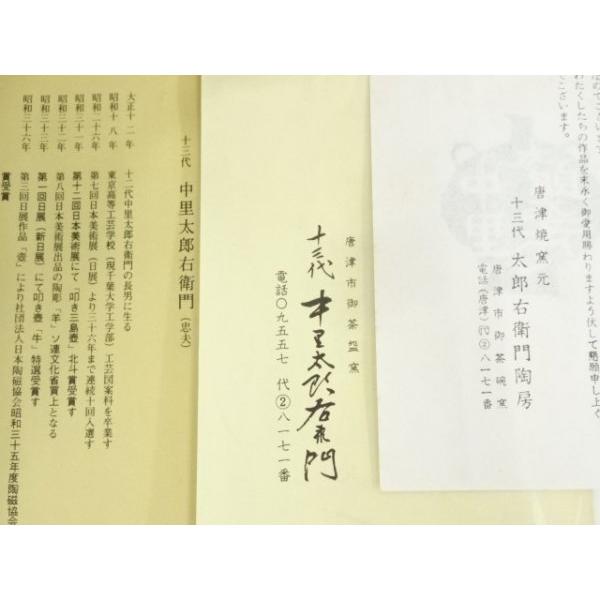 活のでございます
わたくしたちの作品を末永く御愛用賜わりますよう伏して懇願申し上ぐ
でございます。
唐津焼窯元
十三代 太郎右衛門陶房
唐津市御茶碗窯
電話(唐津)代②八一七一番
唐津市御茶盌窯
十三代 中里太郎右衛門
電話〇九五五七 代②八一七一番
十三代 中里太郎右衛門(忠夫)
大正十二年 十二代中里太郎右衛門の長男に生る
昭和十八年 東京高等工芸学校(現千葉大学工学部)工芸図案科を卒業す
昭和二十六年 第七回日本美術展(日展)より三十六年まで連続十回入選す
昭和三十一年 第十二回日本美術展にて「叩き三島壺」北斗賞受賞す
昭和三十二年 第八回日本美術展出品の陶彫「羊」ソ連文化省買上となる
昭和三十三年 第一回日展(新日展)にて叩き壺「牛」特選受賞す
昭和三十六年 第三回日展作品「壺」により社団法人日本陶磁協会昭和三十五年度陶磁協会
賞受賞